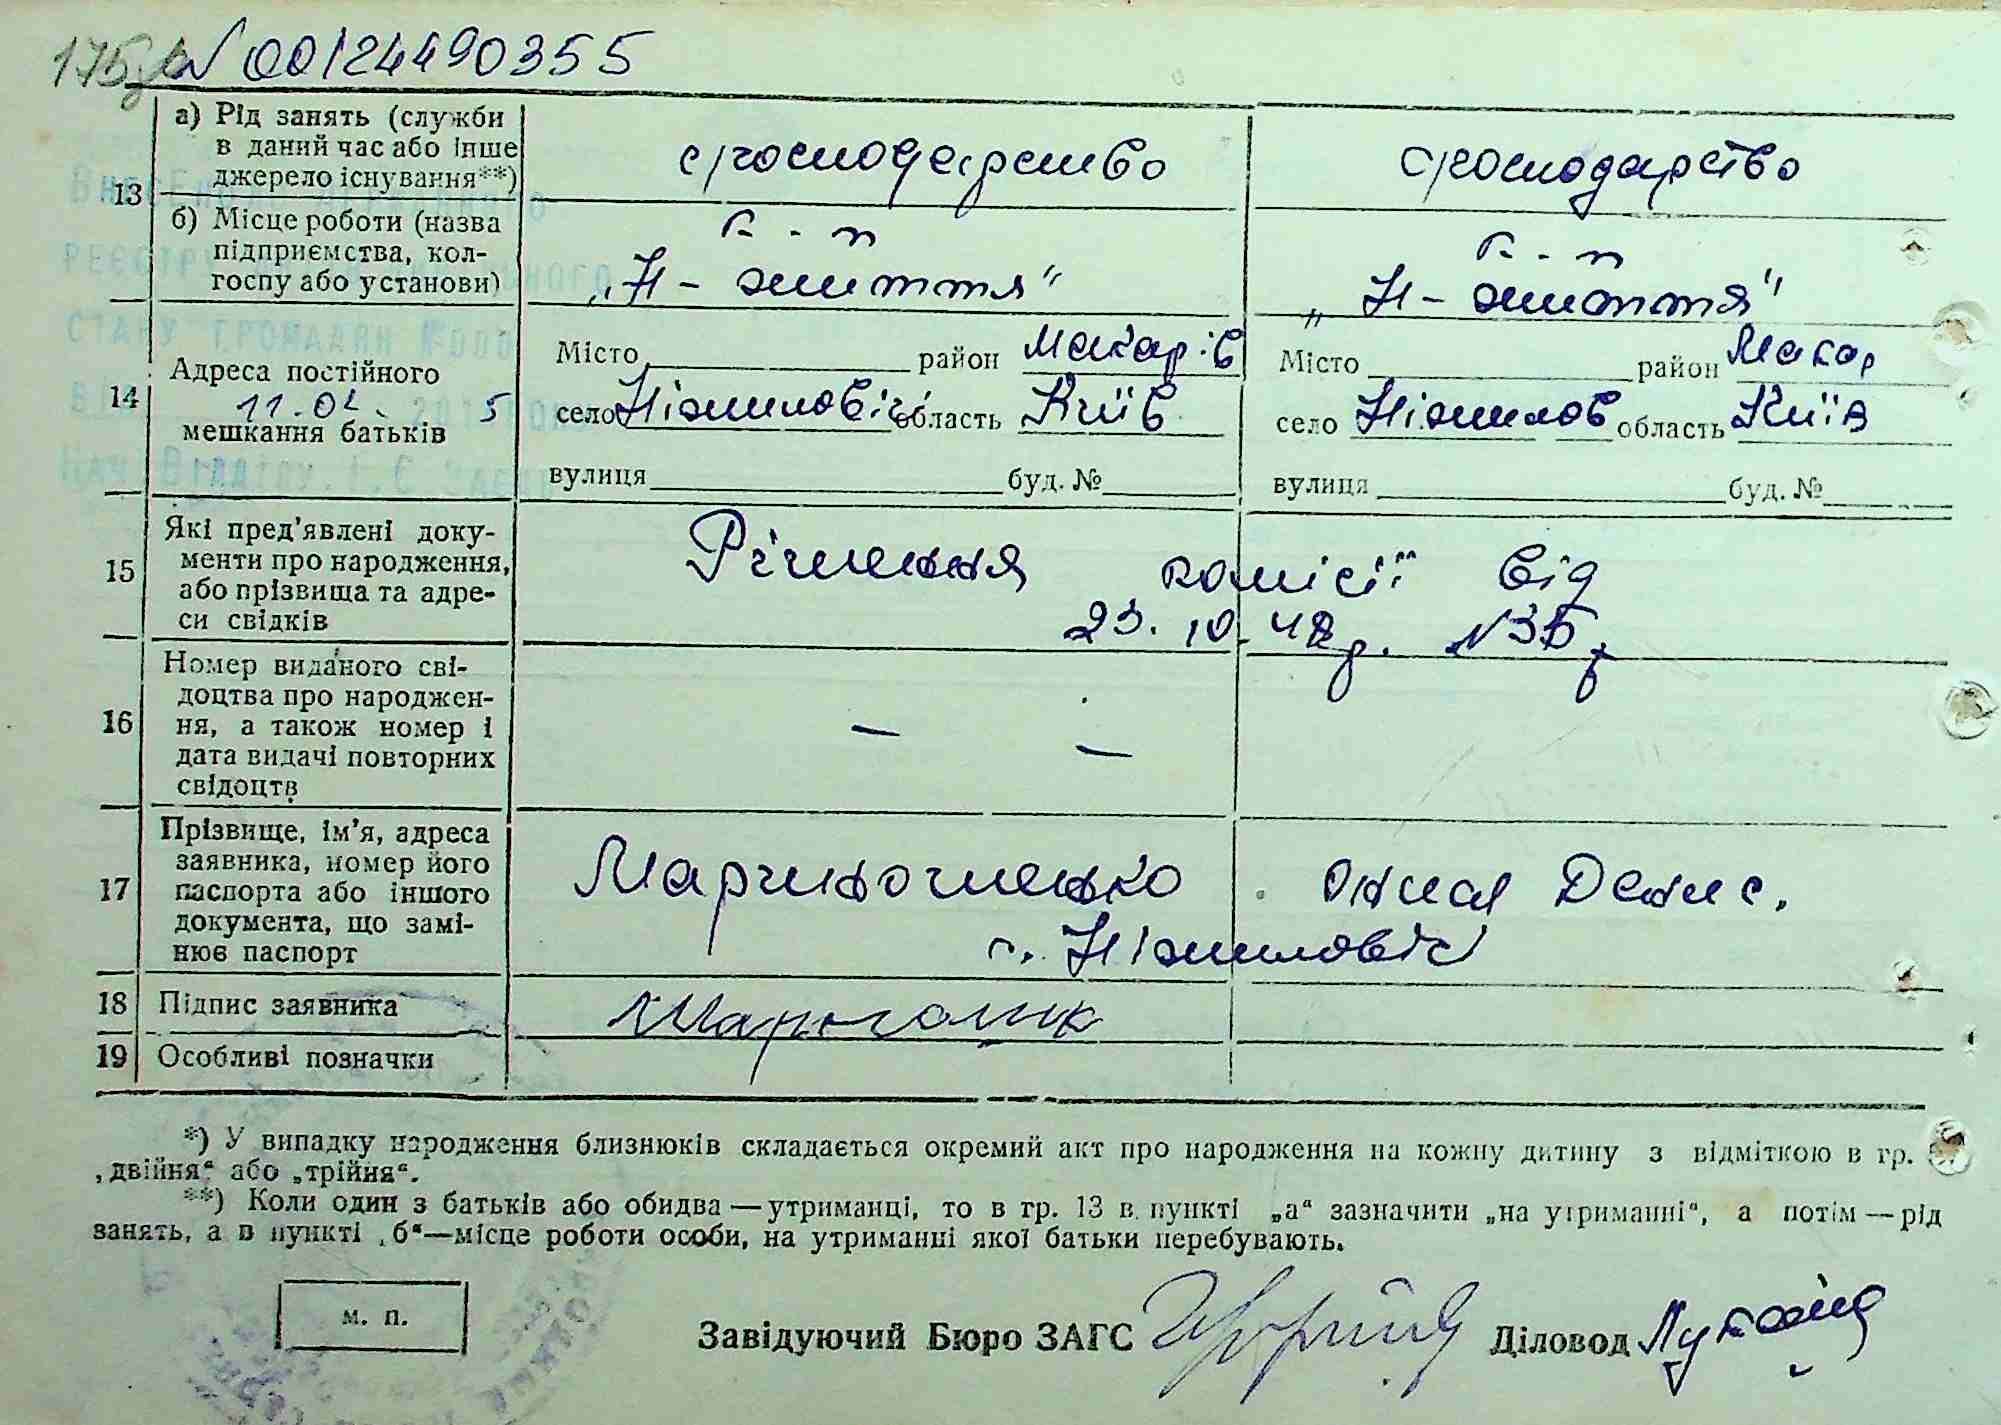 175 № 00124490355
13 а) Рід занять (служби в даний час або інше джерело існування**) с/господарство с/господарство
б) Місце роботи (назва підприємства, колгоспу або установи) к-п „Н-життя" к-п „Н-життя"
14 Адреса постійного мешкання батьків
Місто район Макарів Місто район Макар
село Ніжиловічі область Київ село Ніжилов область Київ
вулиця буд. № вулиця буд. №
ВНЕСЕНО ДО ДЕРЖАВНОГО
РЕЄСТРУ АКТІВ ЦИВІЛЬНОГО
СТАНУ ГРОМАДЯН
ВІД 11.02. 2015 РОКУ
НАЧ ВІДДІЛУ
15 Які пред'явлені документи про народження, або прізвища та адреси свідків Рішення комісії від
23.10.48р. №35
16 Номер виданого свідоцтва про народження, а також номер і дата видачі повторних свідоцтв — —
17 Прізвище, ім'я, адреса заявника, номер його паспорта або іншого документа, що замінює паспорт Мартиношенко Денис.
с. Ніжиловічі
18 Підпис заявника
19 Особливі позначки
*) У випадку народження близнюків складається окремий акт про народження на кожну дитину з відміткою в гр.
„двійня" або „трійня".
**) Коли один з батьків або обидва — утриманці, то в гр. 13 в пункті „а" зазначити „на утриманні", а потім — рід
занять, а в пункті „б"—місце роботи особи, на утриманні якої батьки перебувають.
м. п.
Завідуючий Бюро ЗАГС Діловод